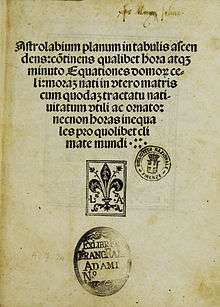 Astrolabium planum in tabulis ascen
dens: cōtinens qualibet hora atqȝ
minuto. Equationes domoꝝ ce
li: moraȝ nati in vtero matris
cum quodaȝ tractatu nati-
uitatum vtili ac ornato:
necnon horas inequa
les pro quolibet cli
mate mundi
L A
EX LIBRIS
FRANC. RA
ADAMI
N.º